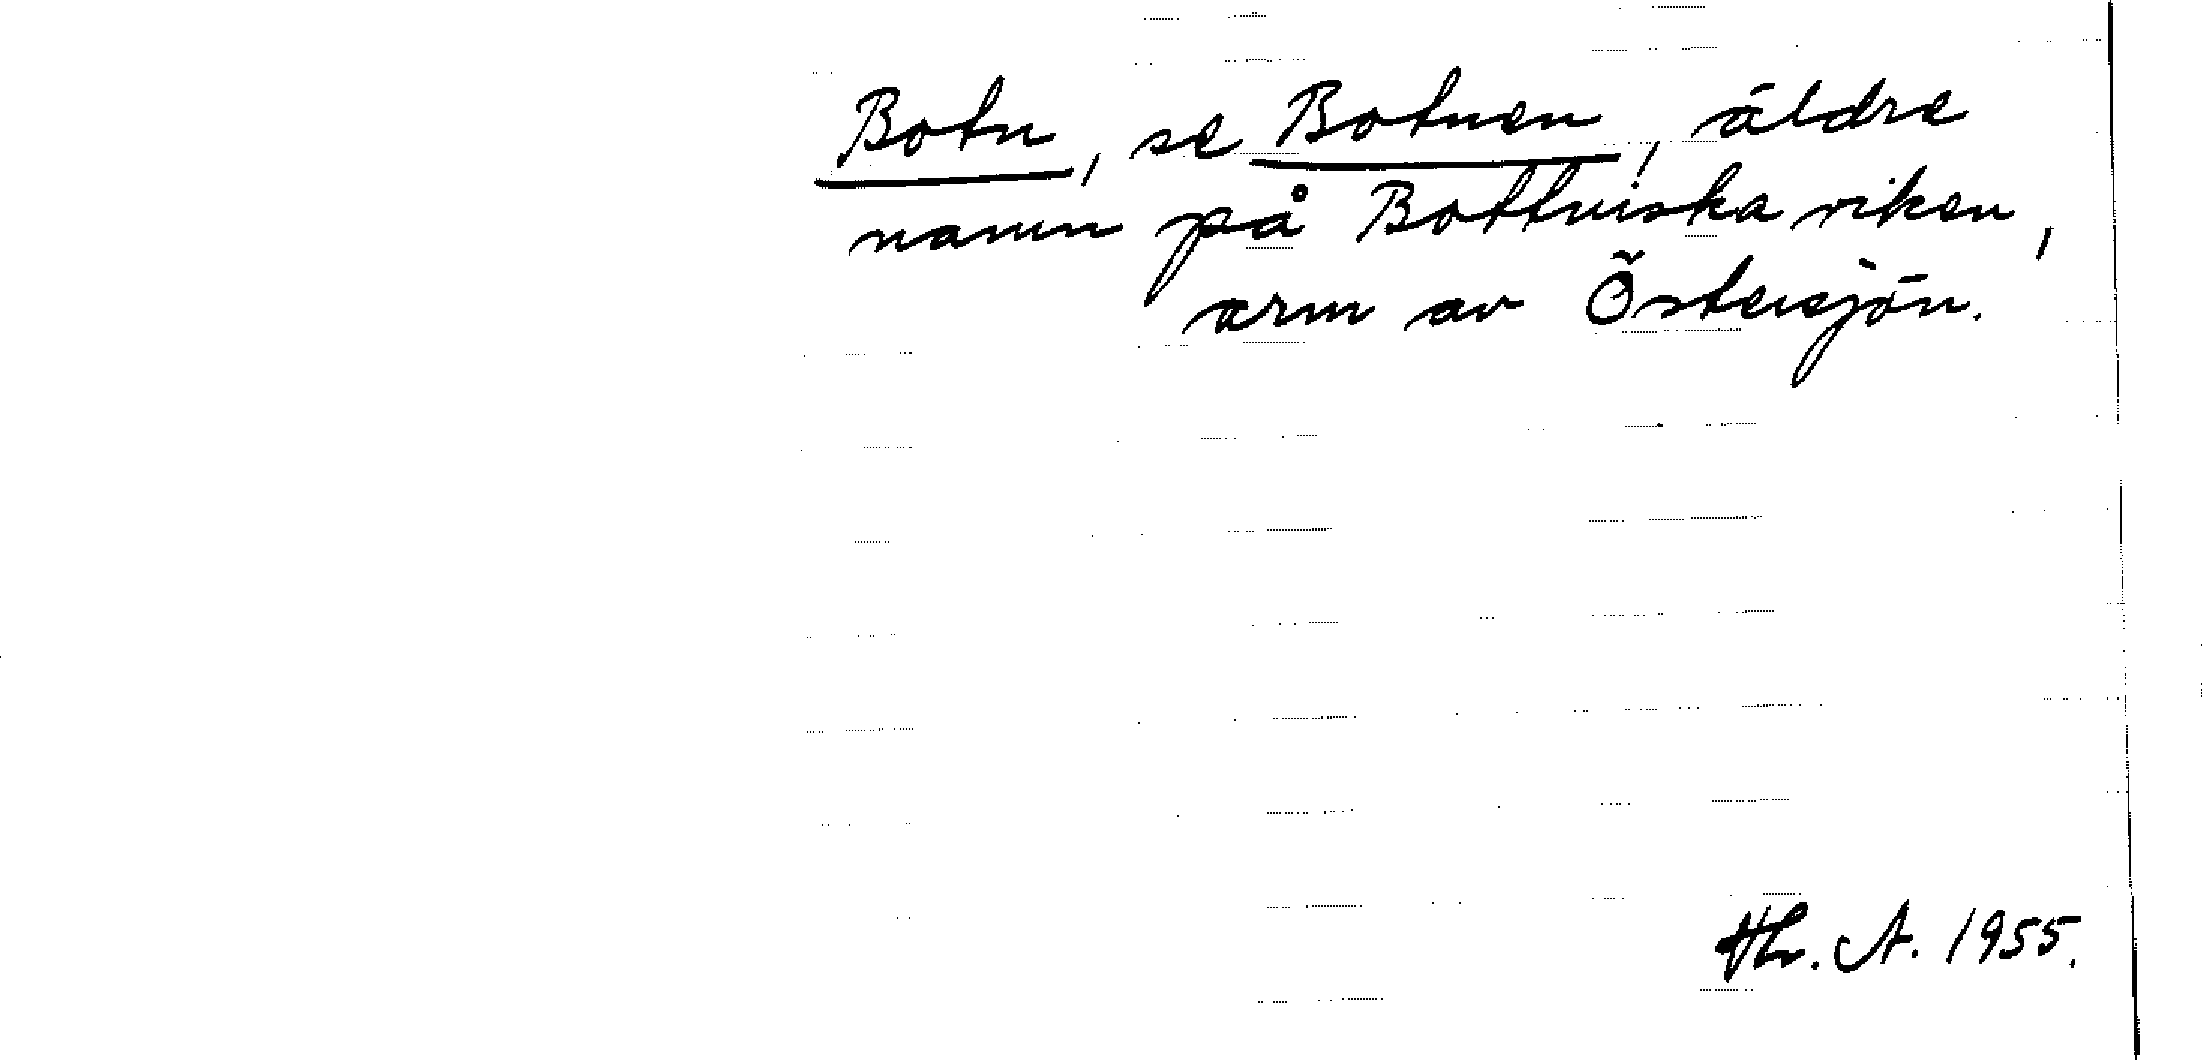 Botn, se Botnen, äldre
namn på Bottniska viken,
arm av Östersjön.
Hr. A. 1955.